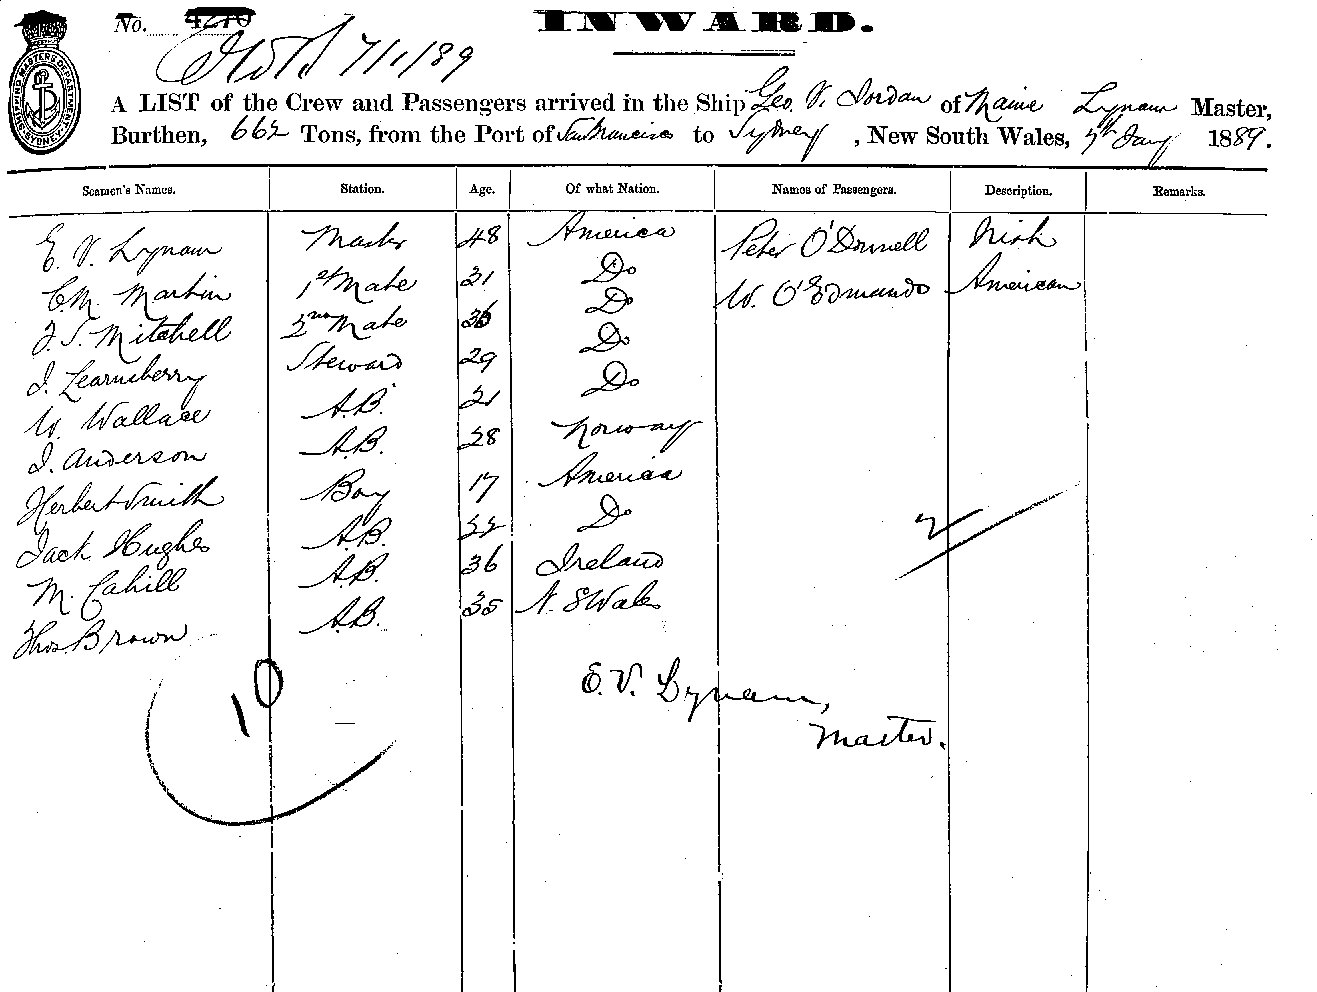 No. 4210
INWARD.
7/1/89
A LIST of the Crew and Passengers arrived in the Ship Geo. V. Jordan of Maine Lynam Master,
Burthen, 662 Tons, from the Port of San Francisco to Sydney, New South Wales, 7th Jany 1889.
Seamen's Names. Station. Age. Of what Nation. Names of Passengers. Description. Remarks.
E. V. Lynam Master 48 America Peter O'Donnell Irish
C. M. Martin 1st Mate 31 Do W. O'Edmunds American
J. S. Mitchell 2nd Mate 36 Do
J. Steward 29 Do
W. Wallace A.B. 21 Do
J. Anderson A.B. 28 Norway
Herbert Smith Boy 17 America
Jack Hughes A.B. 22 Do
M. Cahill A.B. 36 Ireland
Thos. Brown A.B. 35 N. S Wales
2
10
E. V. Lynam,
Master.